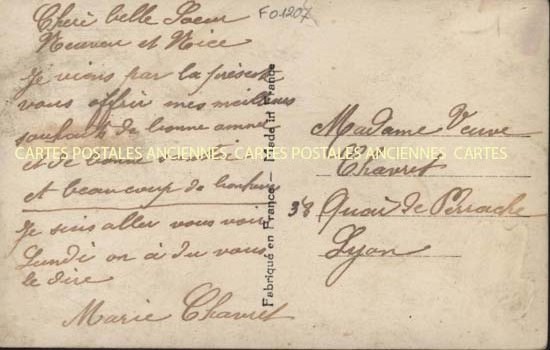 Cheré belle Soeur
Neuveu et Nice
Je viens par la présente
vous offrir mes meilleures
souhaits de bonne année
et de bonne
et beaucoup de bonheur
Je suis aller vous voir
Lundi on à du vous
le dire
Marie Chavret
F01207
Fabriqué en France — Made in France
Madame Veuve
Chavret
38 Quai de Perrache
Lyon
CARTES POSTALES ANCIENNES CARTES POSTALES ANCIENNES CARTES